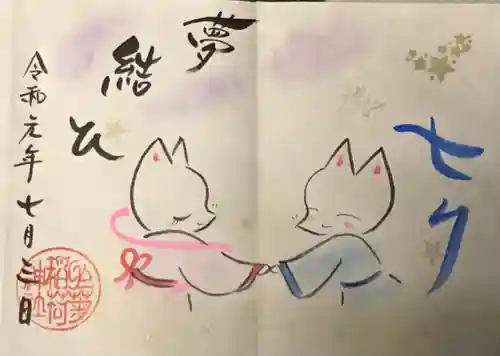 七夕
夢結ひ
令和元年七月三日
稲荷
神社